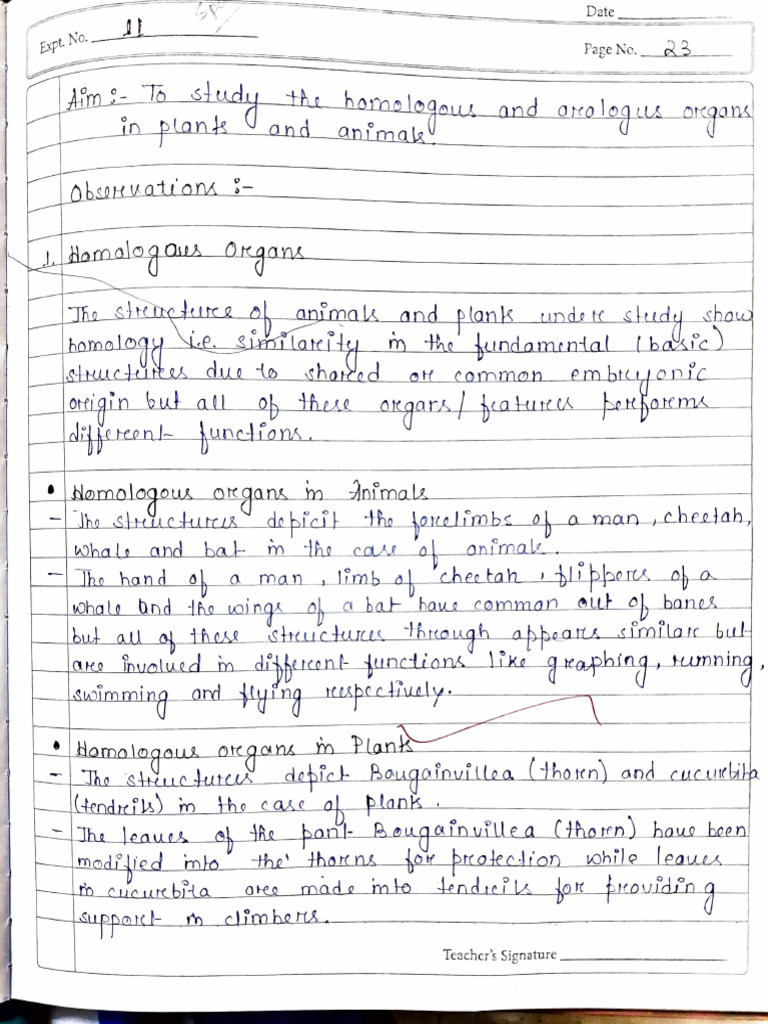 Date
Expt. No. 11
Page No. 23
Aim :- To study the homologous and anologus organs
in plants and animals.
Observations :-
1. Homologous Organs
The structure of animals and plants under study show
homology i.e. similarity in the fundamental (basic)
structures due to shared or common embryonic
origin but all of these organs/ features performs
different functions.
• Homologous organs in Animals
- The structures depicit the forelimbs of a man, cheetah,
whale and bat in the case of animals.
- The hand of a man, limb of cheetah, flippers of a
whale and the wings of a bat have common out of bones
but all of these structures through appears similar but
are involued in different functions like graphing, running,
swimming and flying respectively.
• Homologous organs in Plants
- The structures depict Bougainvillea (thorn) and cucurbita
(tendrils) in the case of plants.
- The leaves of the pant Bougainvillea (thorn) have been
modified into the' thorns for protection while leaves
in cucurbita are made into tendrils for providing
support in climbers.
Teacher's Signature